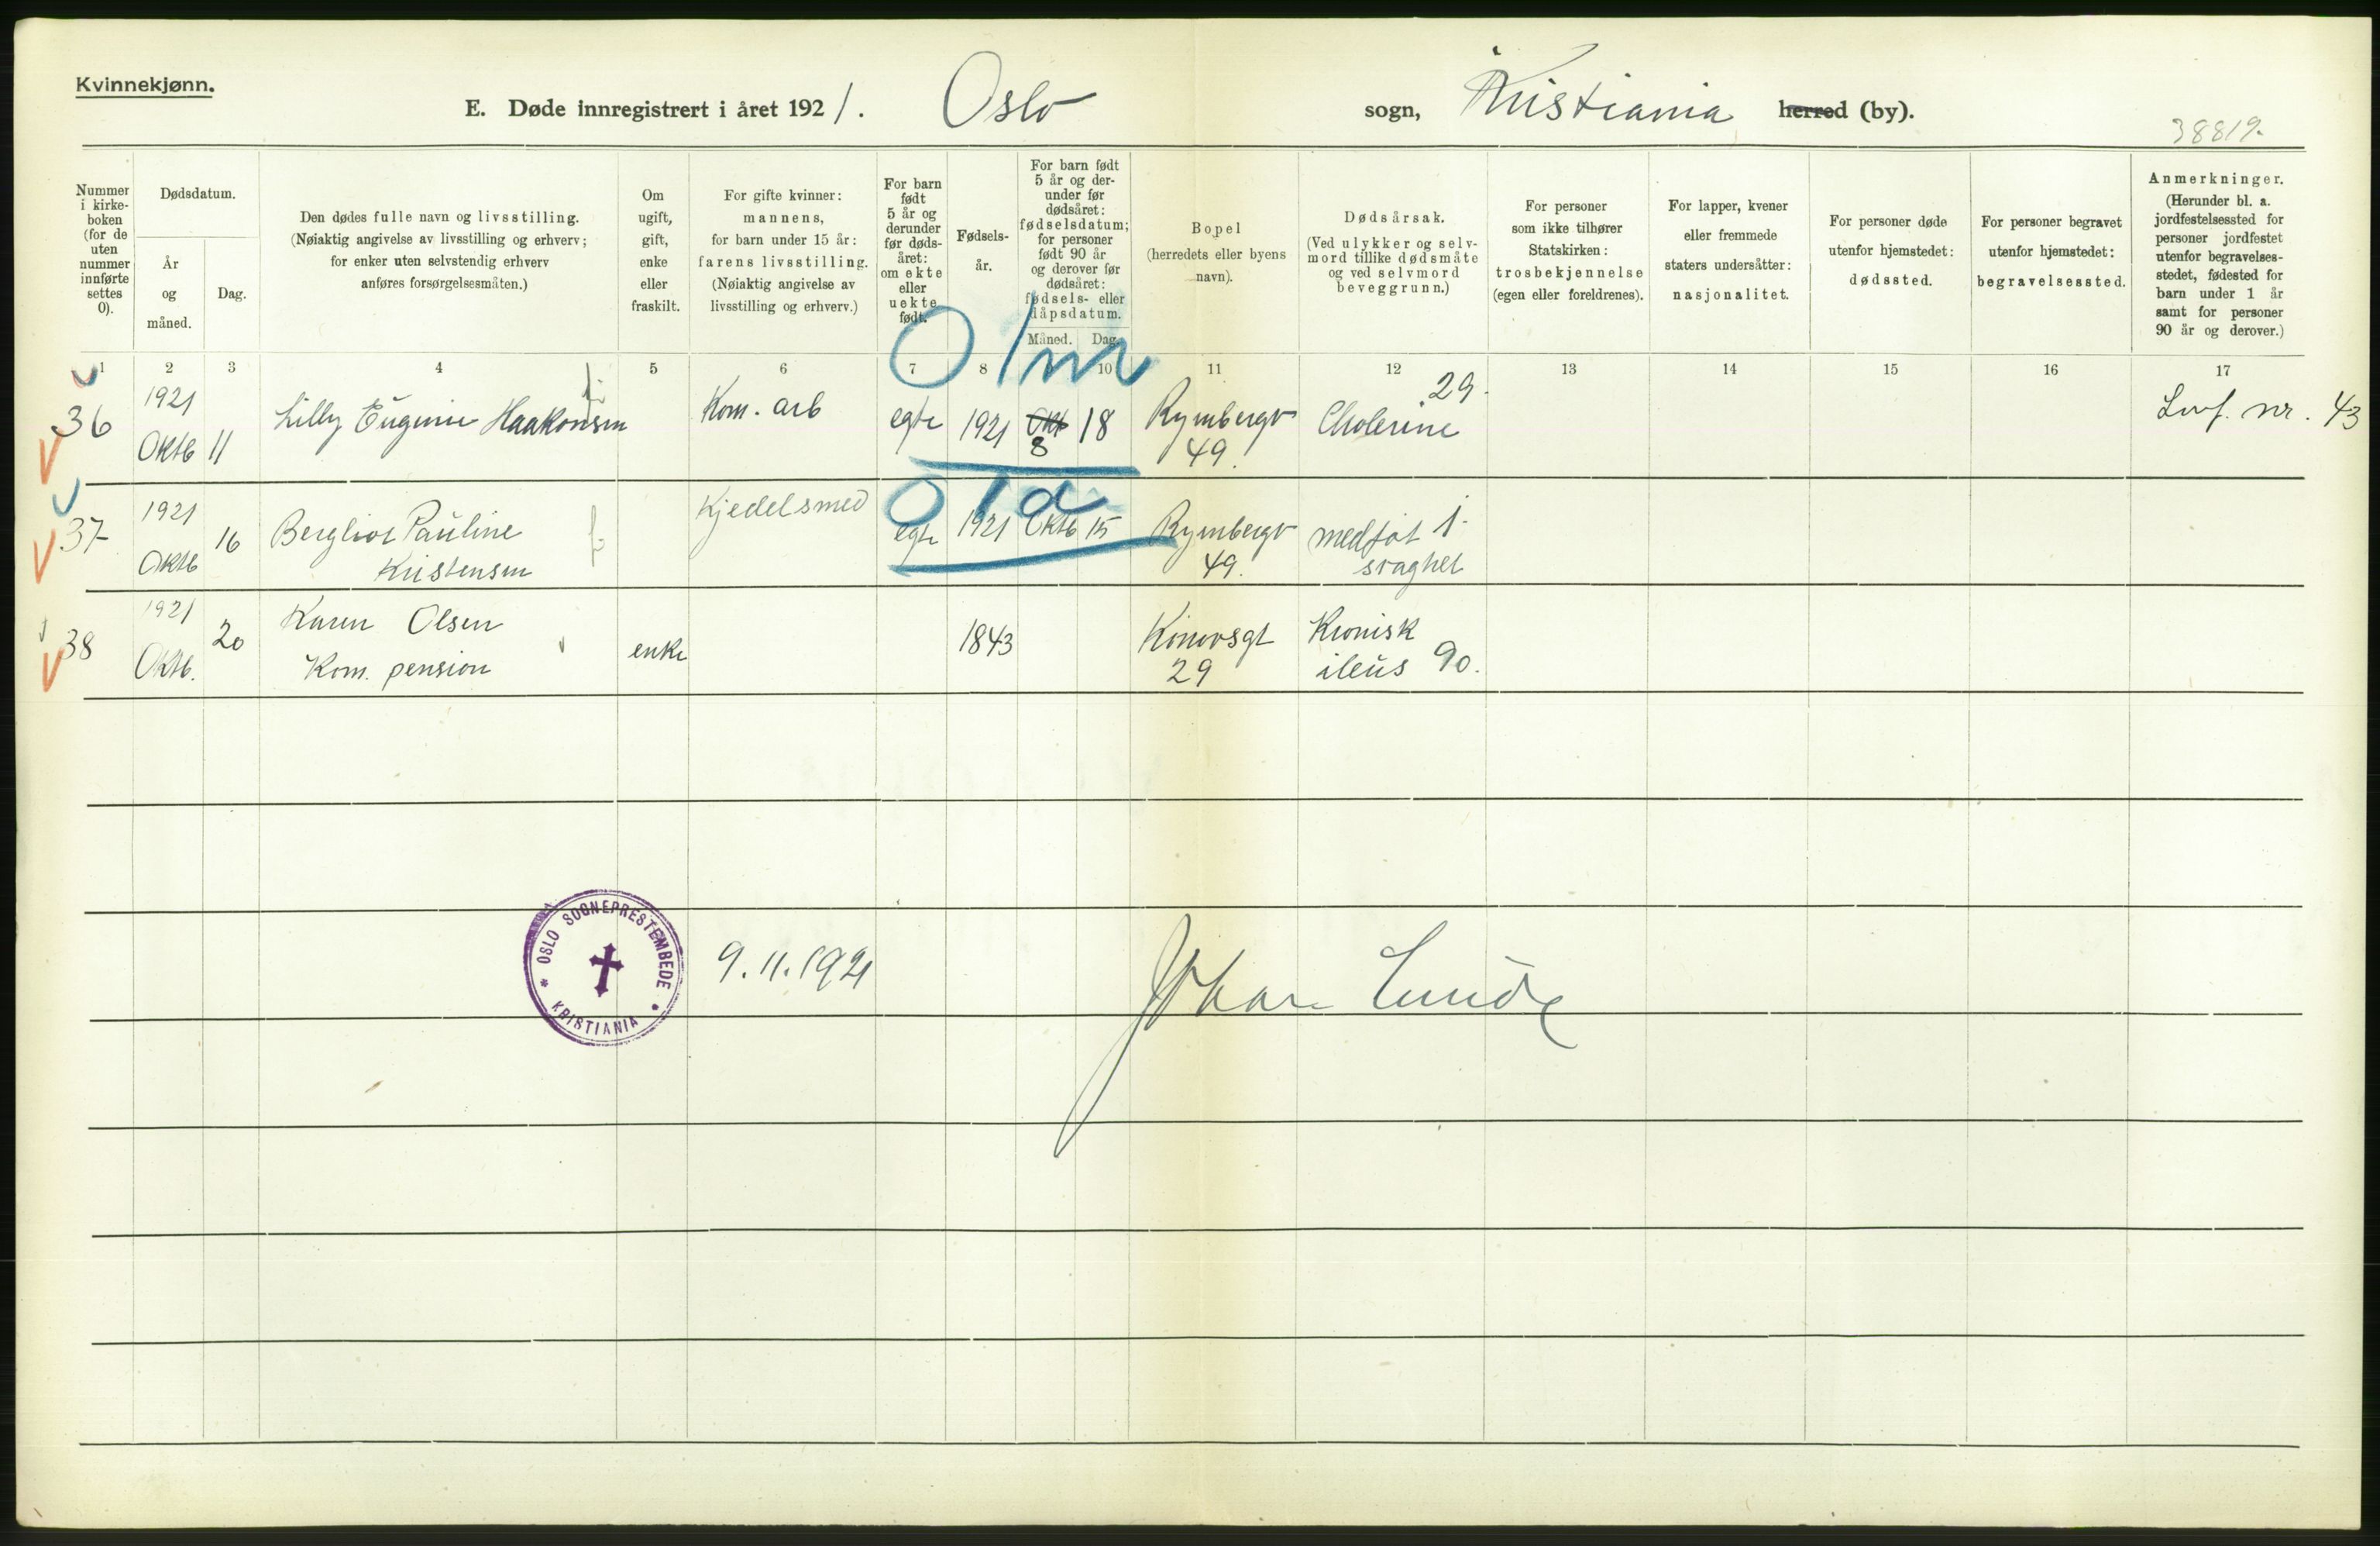 Kvinnekjønn.
E. Døde innregistrert i året 1921. Oslo sogn, Kristiania herred (by).
38819.
Nummer i kirke-boken (for de uten nummer innførte settes 0).
Dødsdatum.
År og måned.
Dag.
Den dødes fulle navn og livsstilling.
(Nøiaktig angivelse av livsstilling og erhverv;
for enker uten selvstendig erhverv
anføres forsørgelsesmåten.)
Om
ugift,
gift,
enke
eller
fraskilt.
For gifte kvinner:
mannens,
for barn under 15 år:
farens livsstilling.
(Nøiaktig angivelse av
livsstilling og erhverv.)
For barn
født
5 år og
derunder
før døds-
året:
om ekte
eller
uekte
født.
Fødsels-
år.
For barn født
5 år og der-
under før
dødsåret:
fødselsdatum;
for personer
født 90 år
og derover før
dødsåret:
fødsels- eller
dåpsdatum.
Måned. Dag.
Bopel
(herredets eller byens
navn).
Dødsårsak.
(Ved ulykker og selv-
mord tillike dødsmåte
og ved selvmord
beveggrunn.)
For personer
som ikke tilhører
Statskirken:
trosbekjennelse
(egen eller foreldrenes).
For lapper, kvener
eller fremmede
staters undersåtter:
nasjonalitet.
For personer døde
utenfor hjemstedet:
dødssted.
For personer begravet
utenfor hjemstedet:
begravelsessted.
Anmerkninger.
(Herunder bl. a.
jordfestelsessted for
personer jordfestet
utenfor begravelses-
stedet, fødested for
barn under 1 år
samt for personer
90 år og derover.)
1 2 3 4 5 6 7 8 10 11 12 13 14 15 16 17
0 1 m
36 1921 Oktb 11 Lilly Eugenie Haakonsen Kom. arb egte 1921 Okt 8 18 Rymbergv 49. Cholerine 29. nr. 43
0 1 d
37 1921 Oktb 16 Bergliot Pauline Kristensen Kjedelsmed egte 1921 Oktb 15 Rymbergv 49. medføt svaghet 1.
38 1921 Oktb. 20 Karen Olsen Kom. pension enke 1843 29 Kronisk ileus 90.
OSLO SOGNEPRESTEMBEDE
KRISTIANIA
9.11.1921
Johan Lunde